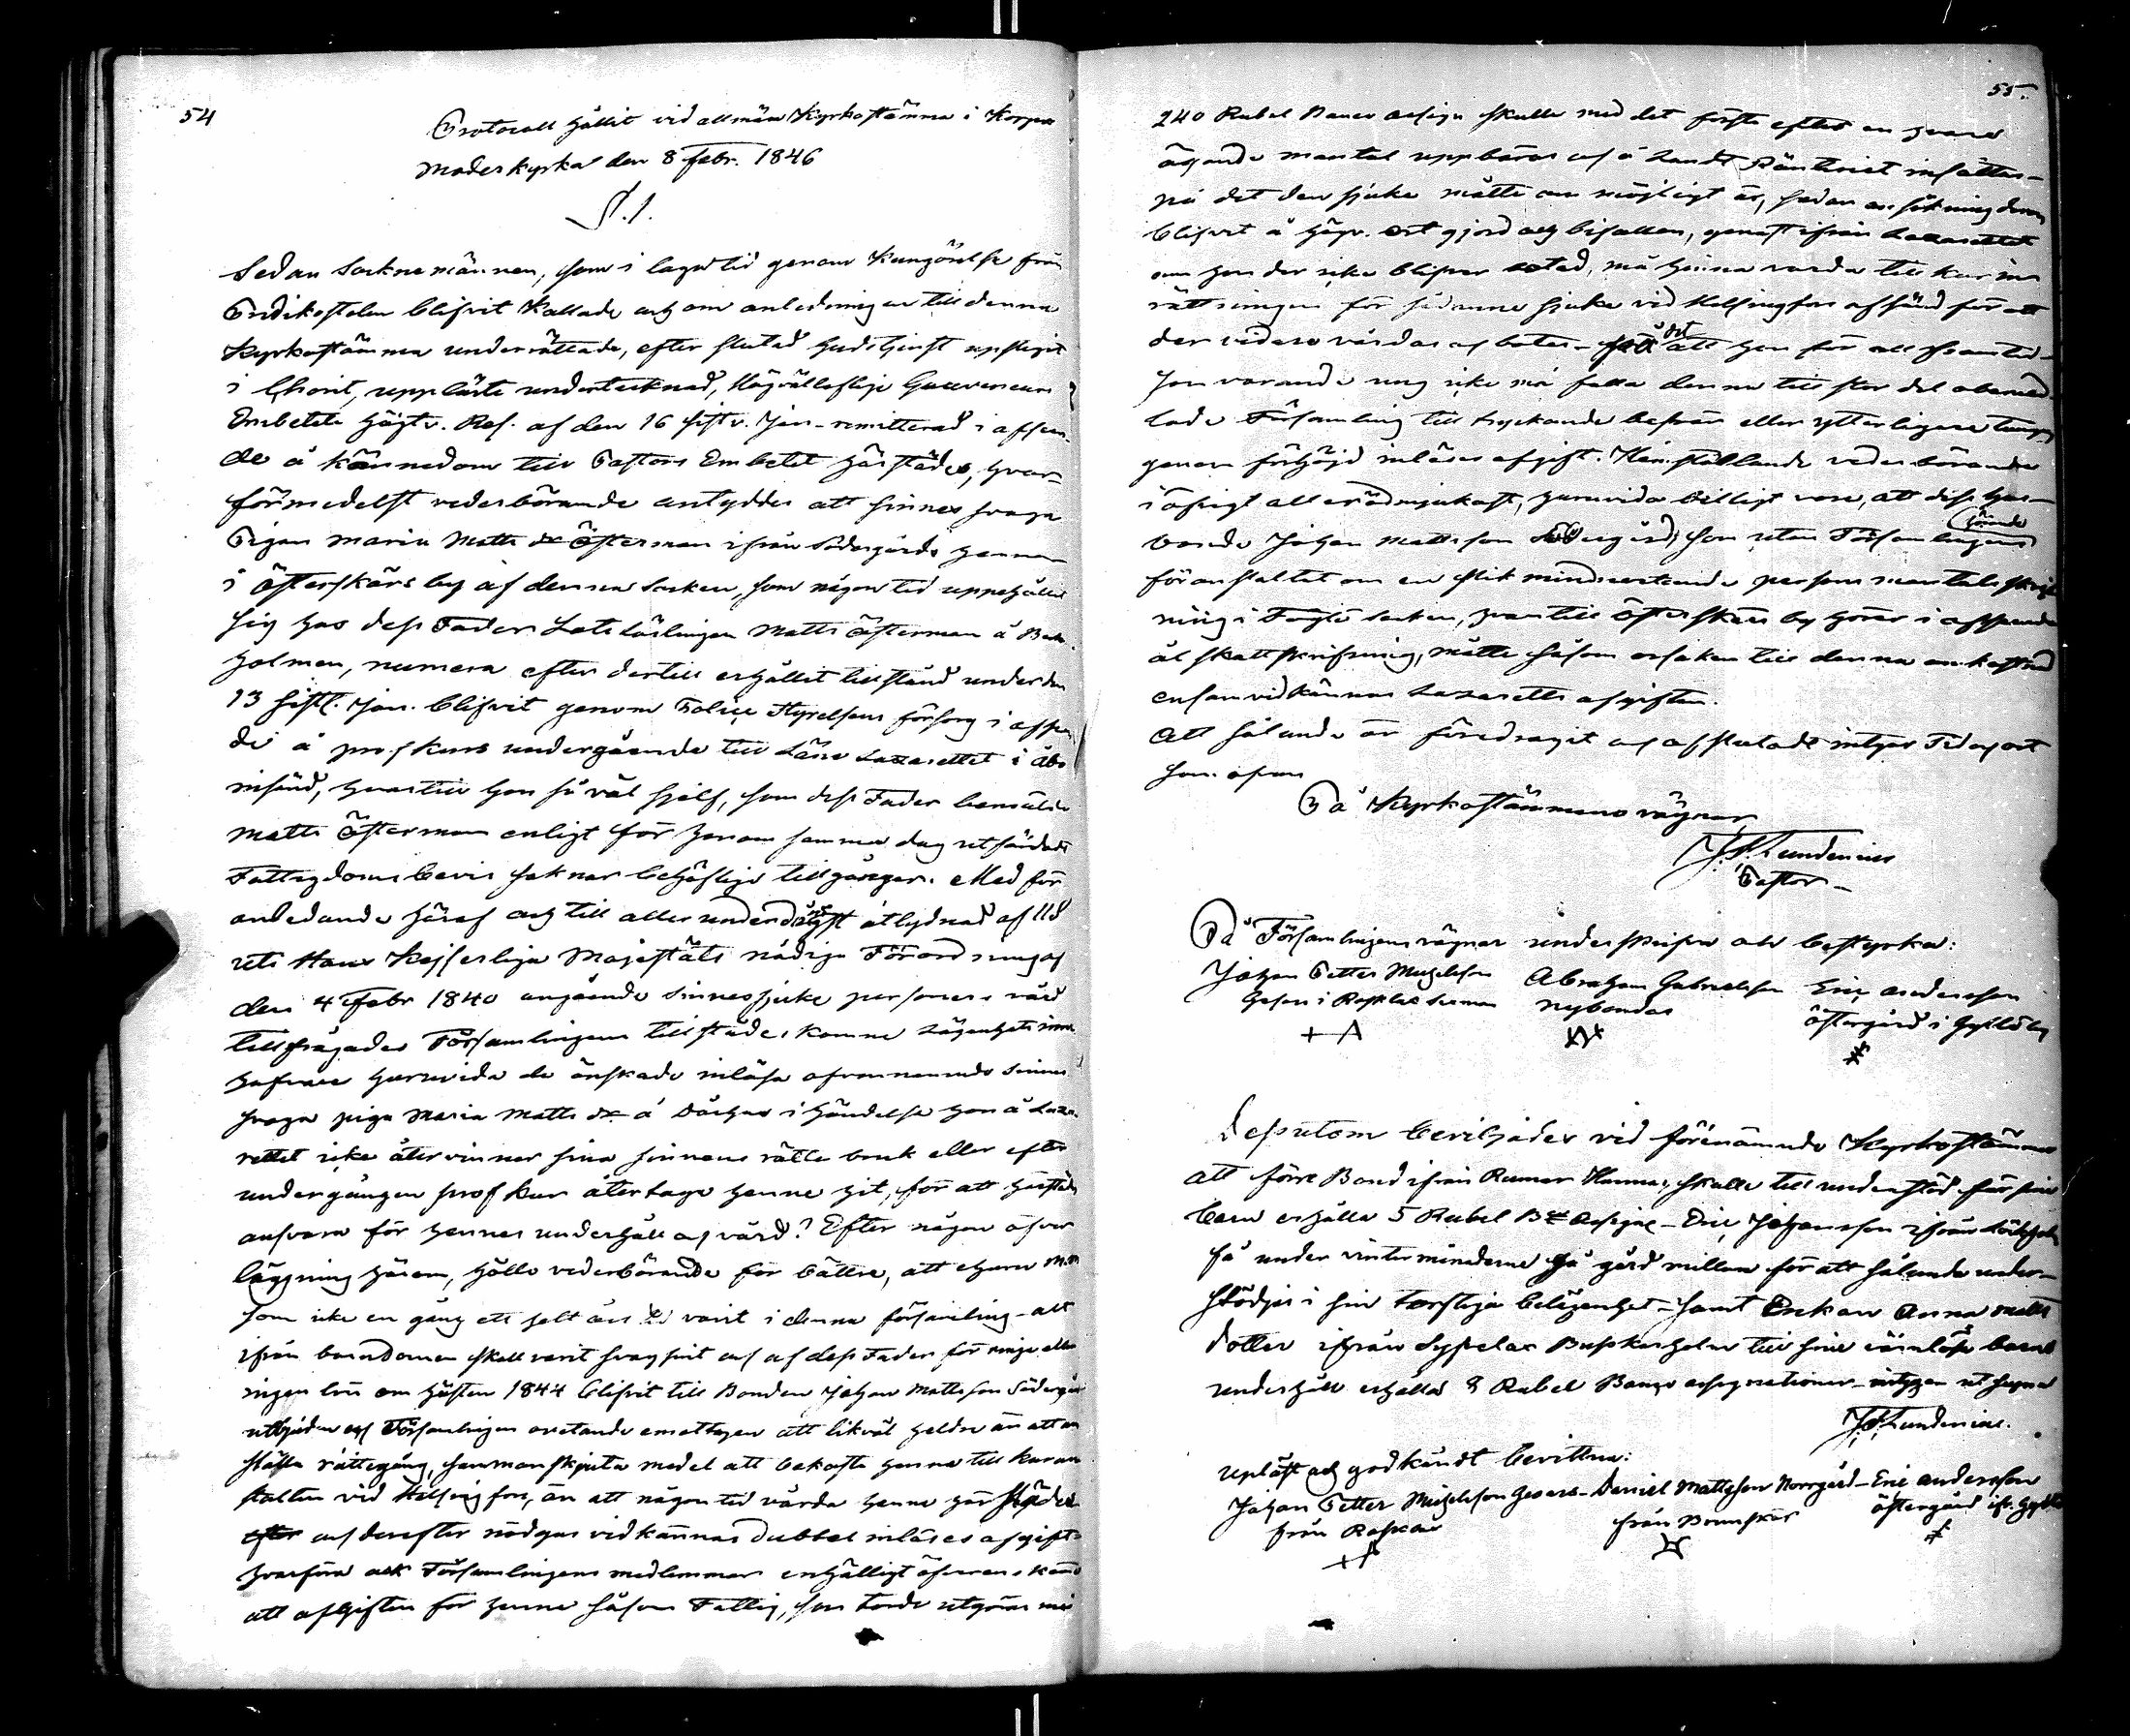 54
Protocoll hållit vid allmän Kyrkostämma i Korpo
Moderkyrka den 8 Febr. 1846
S. 1.
Sedan Socknemännen, som i laga tid genom Kungörelse från
Predikostolen blifvit kallade och om anledningen till denna
Kyrkostämma underrättade, efter slutad Gudstjenst upstigit
i Choret, uppläste undertecknad, Högvälloflige Gouverneurs
Embetets högtv. Res. af den 16 sistv. Jan. remitterad i afseen-
de å kännedom till Pastors Embetet härstädes, hvar-
förmedelst vederbörande antyddes att sinnes svaga
Pigan Maria Matts dr Österman ifrån Södergårds hemman
i Österskärs by af denna Socken, som någon tid uppehållit
sig hos dess Fader Lots Lärlingen Matts Österman å
holmen, numera efter dertill erhållit tillstånd under den
13 sistl. Jan. blifvit genom Police Styrelsens försorg i afseen
de å profkurs undergående till Läns Lazarettet i Åbo
insänd, hvartill hon så väl sjelf, som dess Fader bemälde
Matts Österman enligt för honom samma dag utfärdadt
Fattigdoms bevis saknar behöflige tillgångar. Med för
anledande häraf och till allerunderdånigst åtlydnad af
Hans Kejserliga Majestäts nådiga Förordning af
den 4 Febr 1840 angående sinnessjuke personers vård
tillfrågades Församlingens tillstädes komne Lägenhets inne
hafvare huruvida de önskade inlösa ofvannemnde sinnes
svaga piga Maria Matts dr å i händelse hon å Laza-
rettet icke återvinner sina sinnens rätta bruk eller efter
undergången profkur återtaga henne hit, för att härstädes
ansvara för hennes underhåll och vård? Efter någon öfver
läggning härom, höllo vederbörande för bättre, att ehuru
som icke en gång ett helt år varit i denna församling - utan
ifrån barndomen skall varit svagsint och af dess Fader för ringa eller
ingen lön om hösten 1844 blifvit till Bonden Johan Mattsson Södergård
utbjuden och Församlingen ovetande emottagen att likväl heldre än att an
ställa rättegång, sammanskjuta medel att bekosta henne till kuran
stalten vid Helsingfors, än att någon tid vårda henne här städes
och derefter nödgas vidkännas dubbel inlösesafgift -
hvarföre ock Församlingens medlemmar enhälligt öfverens kommo
att afgiften för henne såsom Fattig, som torde utgöras med
55.
240 Rubel Banco assign skulle med det första efter en hvars
ägande mantal uppbäras och å Landt Ränteriet insättas -
på det den sjuka måtte om möjligt är, sedan ansökning derom
blifvit å högv. ort gjord och bifallen, genast ifrån Lazarettet
om hon der icke blifver botad, må hinna varda till kur in-
rättningen för sådanne sjuka vid Helsingfors afsänd för att
der vidare vårdas och botas - på det att hon för all framtid -
hon varande ung icke må falla denna till stor del obemed
lade Församling till tryckande besvär eller ytterligare tunga
genom förhöjd inlöses afgift. Hemställande vederbörande
i öfrigt allerödmjukast, huruvida billigt vore, att dess hus-
bonde Johan Mattsson Södergård, som utan Församlingens hörande
föranstaltat om en slik mindre vetande persons mantals skrif
ning i Töfsala socken, hvartill Österskärs by hörer i afseende
å skattskrifning, måtte såsom orsaken till denna omkostnad
ensam vidkännas Lazaretts afgiften.
Att sålunda är föredragit och afslutadt intygar Tid och ort
som ofvan
På Kyrkostämmans vägnar
J. S. Lundenius
Pastor -
På Församlingens vägnar underskrifva och bestyrka:
Johan Petter Michelsson Abraham Gabrielsson Eric Andersson
nybondas Östergård i Gyttö by
Dessutom beviljades vid förenämnde Kyrkostämma
att förre Bond ifrån Rumar Hannas skulle till understöd för sine
barn erhålla 5 Rubel Bco Assigne - Eric Johansson ifrån
få under vintermånaderne gå gård millan för att sålunda under-
stödjas i sin torftiga belägenhet - samt Enkan Anna Matts
dotter ifrån Buskerholm till sine värnlösa barns
underhåll erhålla 8 Rubel Banco assignationer - intygar ut supra
J. S. Lundenius.
Upläst och godkändt bevittna:
Johan Petter Michelsson - Daniel Mattsson Norrgård - Eric Andersson
från från Brunskär Östergård ifr. Gyttö